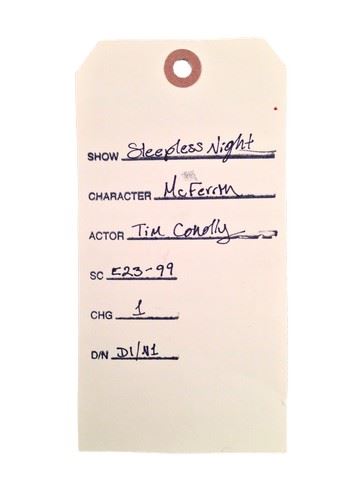 SHOW Sleepless Night
CHARACTER McFerrin
ACTOR Tim Conolly
SC E23-99
CHG 1
D/N D1/N1